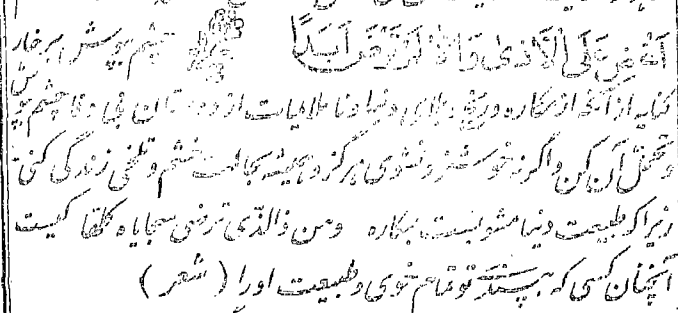 اغض علی الاذی و الا لم ترض ابدا چشم بپوش بر خار
کنایه از آنکه از مکاره و رنج و بلای دنیا و ناملایمات از دوستان بی وفا چشم پوش
و تحمل آن کن و اگرنه خوشنود نشوی هرگز و همیشه بحالت خشم و تلخی زندگی کنی
زیرا که طبیعت دنیا مشوبست بمکاره ومن ذا الذی ترضی سجایاه کلها کیست
آنچنان کسی که به پسندی تو تمام خوی و طبیعت او را ( شعر )